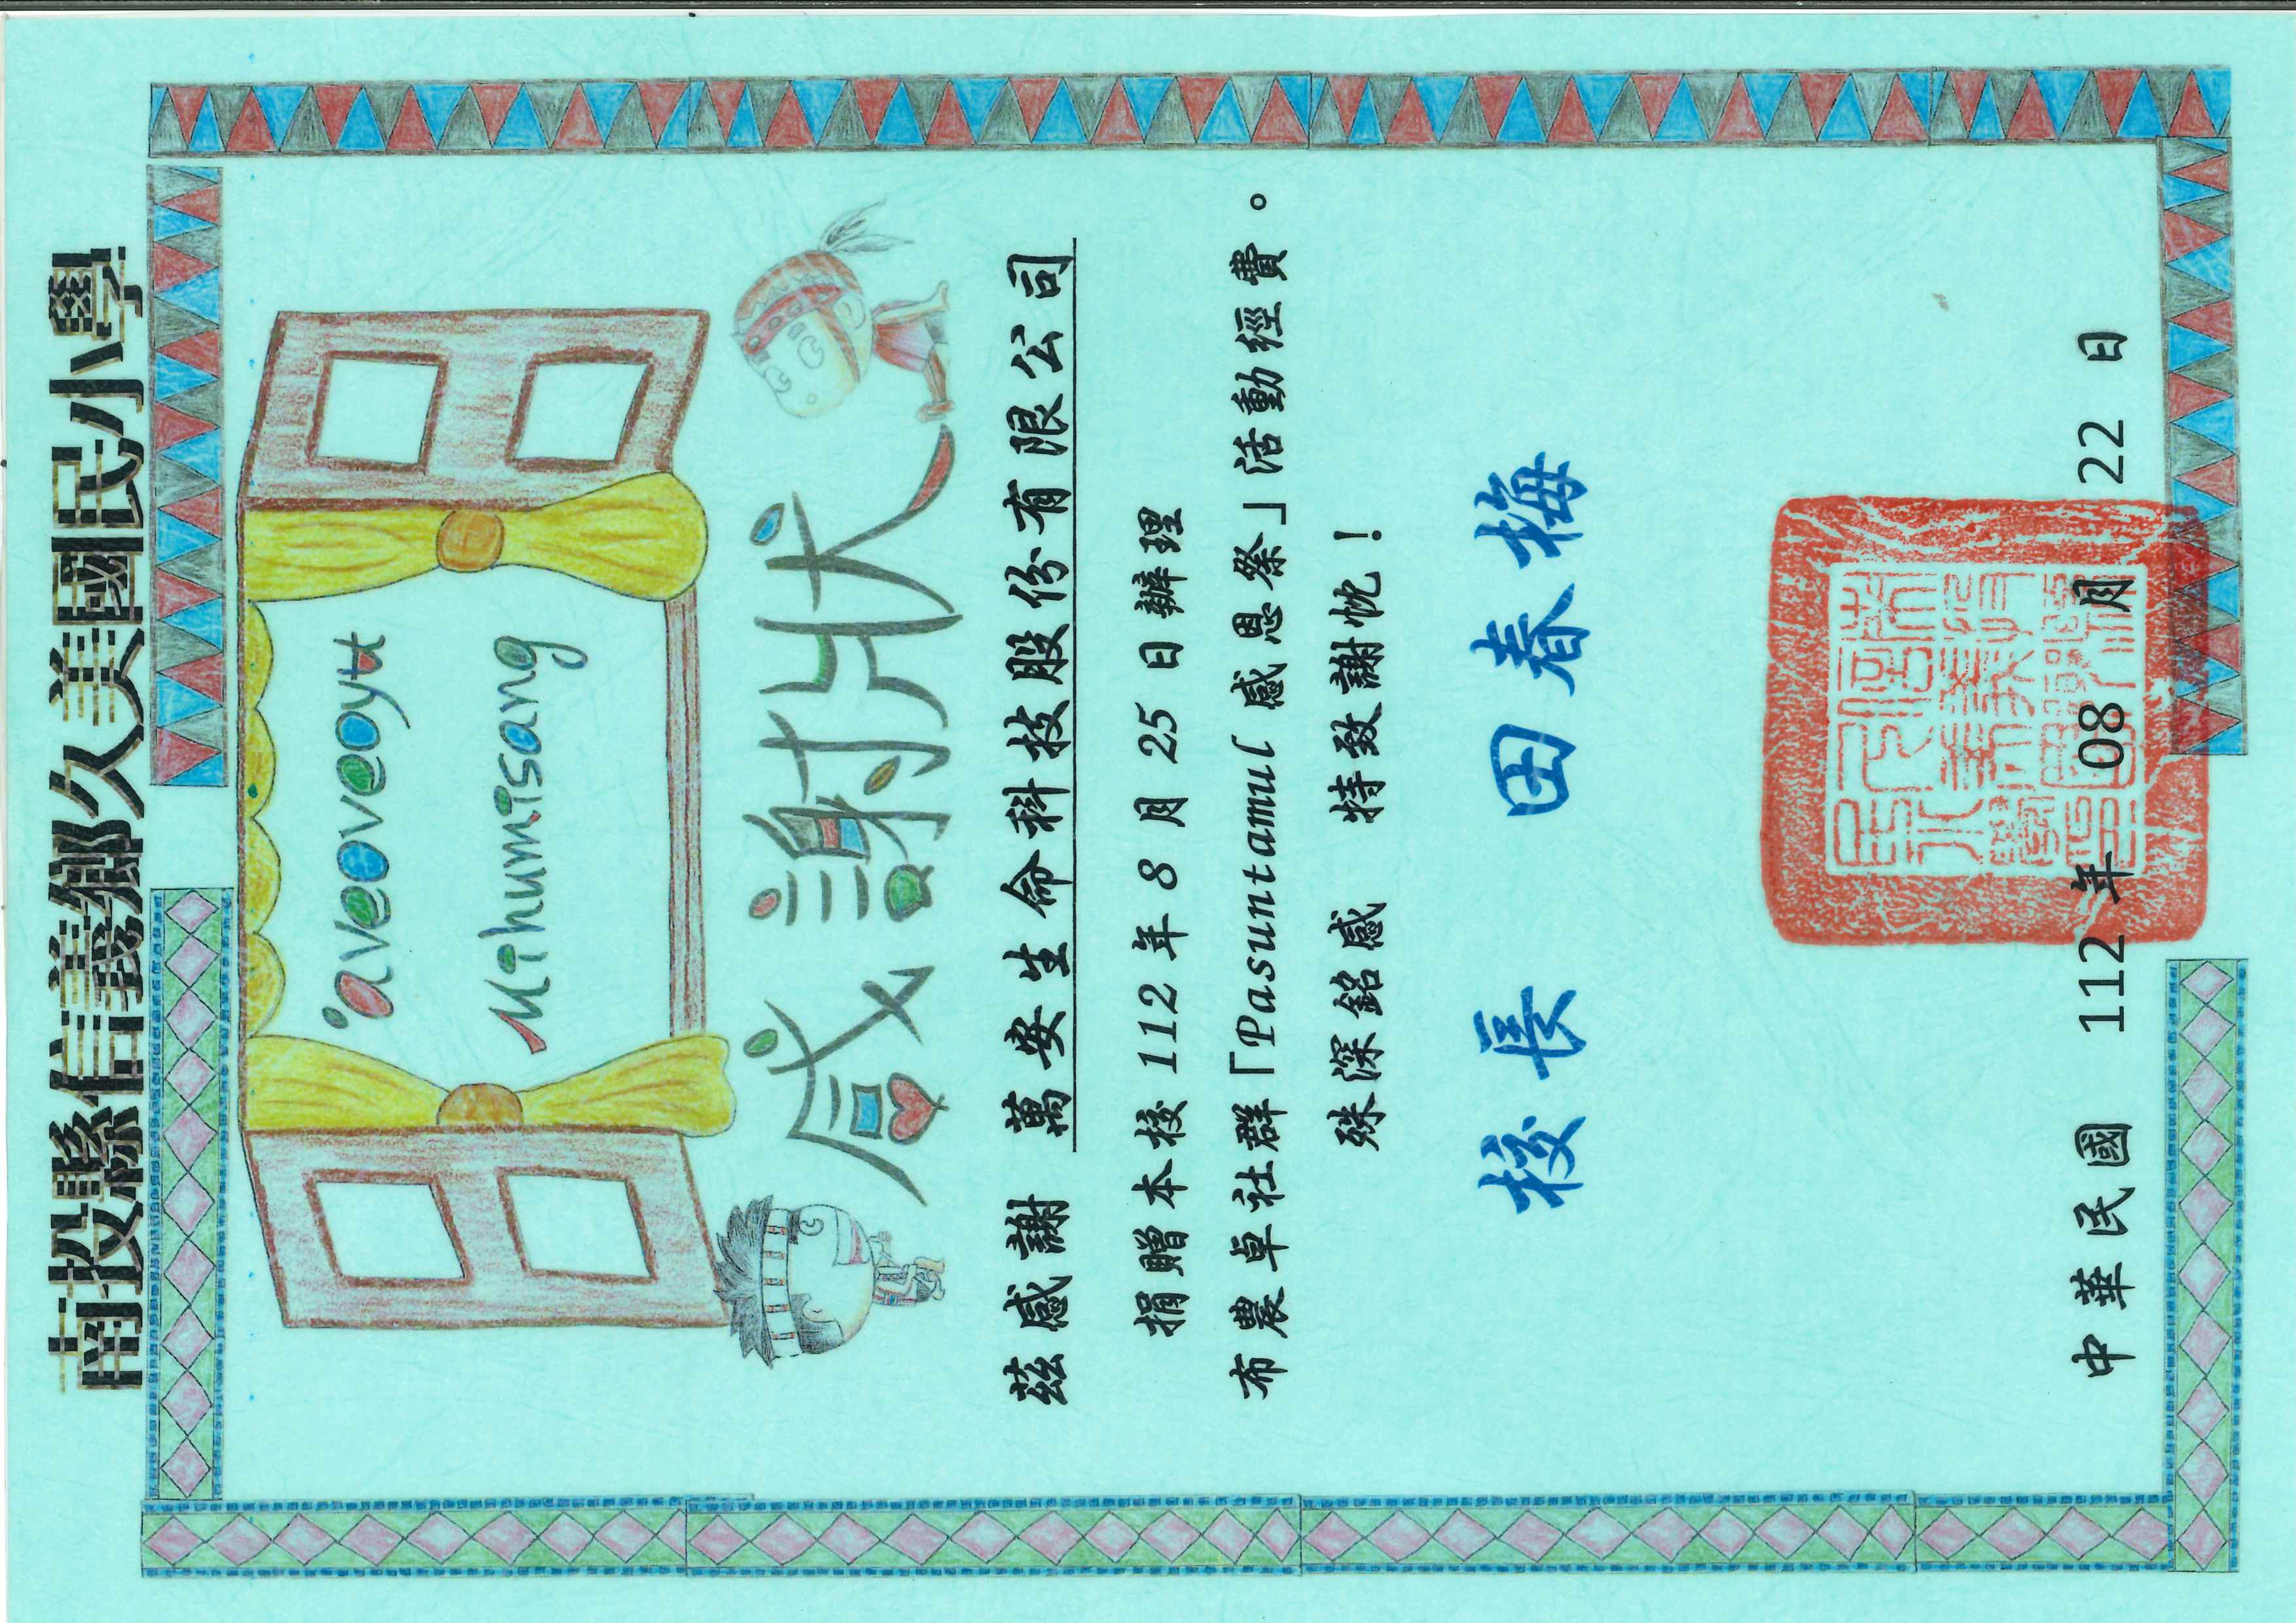 南投縣信義鄉久美國民小學
'aveoveoyu
Mihumisang
感謝狀
茲感謝 萬安生命科技股份有限公司
捐贈本校112年8月25日辦理
布農卓社群「Pasuntamul 感恩祭」活動經費。
殊深銘感 特致謝忱！
校長 田春梅
中華民國 112 年 08 月 22 日